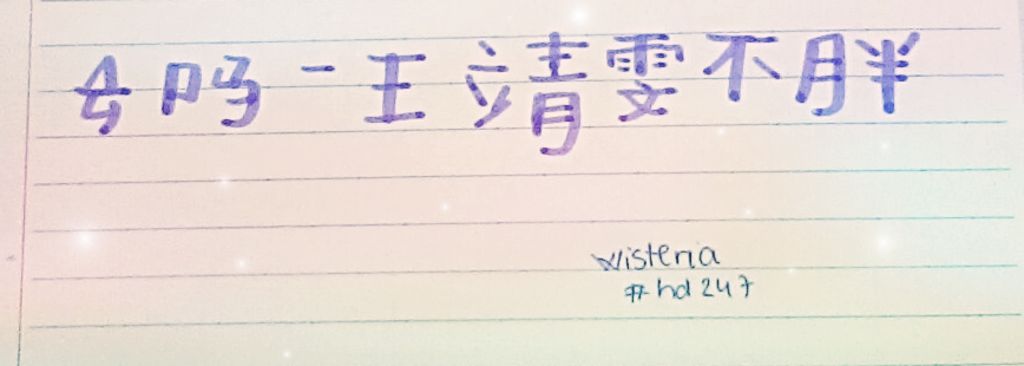 去吗一王靖雯不胖
wisteria
#hd247